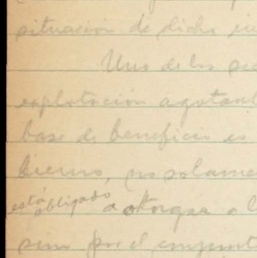 situación de dicho in
Uno de los
explotación agotant
base de beneficio es
bierno, no solame
está obligado a otorgar a l
sino por el conjunt